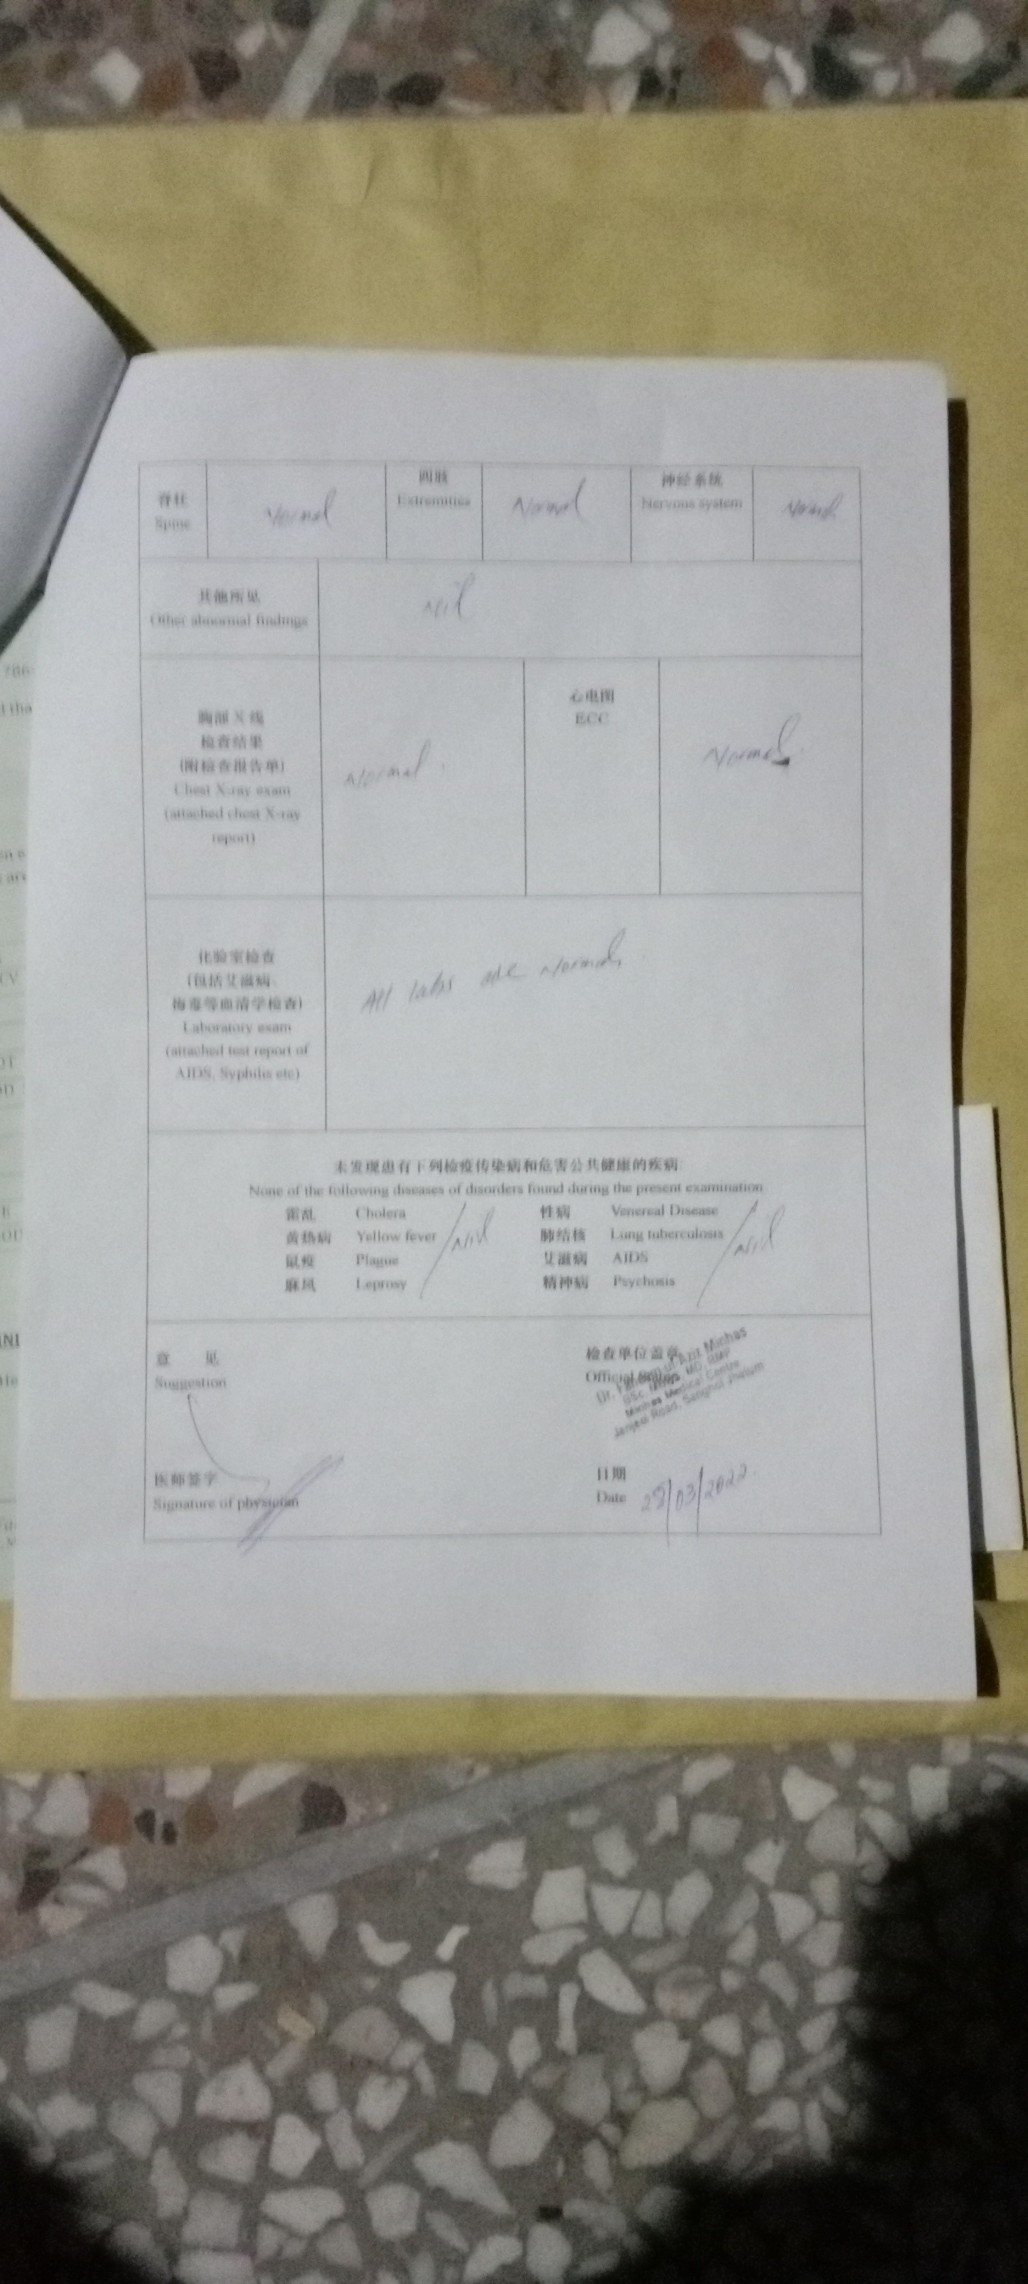 脊柱
Spine
Normal
四肢
Extremities
Normal
神经系统
Nervous system
Normal
其他所见
Other abnormal findings
Nil
胸部 X 线
检查结果
(附检查报告单)
Chest X-ray exam
(attached chest X-ray
report)
Normal.
心电图
ECC
Normal.
化验室检查
(包括艾滋病、
梅毒等血清学检查)
Laboratory exam
(attached test report of
AIDS, Syphilis etc)
All labs are normal.
未发现患有下列检疫传染病和危害公共健康的疾病:
None of the following diseases of disorders found during the present examination
霍乱 Cholera 性病 Venereal Disease
黄热病 Yellow fever Nil 肺结核 Lung tuberculosis Nil
鼠疫 Plague 艾滋病 AIDS
麻风 Leprosy 精神病 Psychosis
意 见
Suggestion
检查单位盖章
Official
Dr. Azit Minhas
BSc. MBBS, MD, RMP
Minhas Medical Centre
Road, Sanghoi Jhelum
医师签字
Signature of physician
日期
Date 28/03/2022.